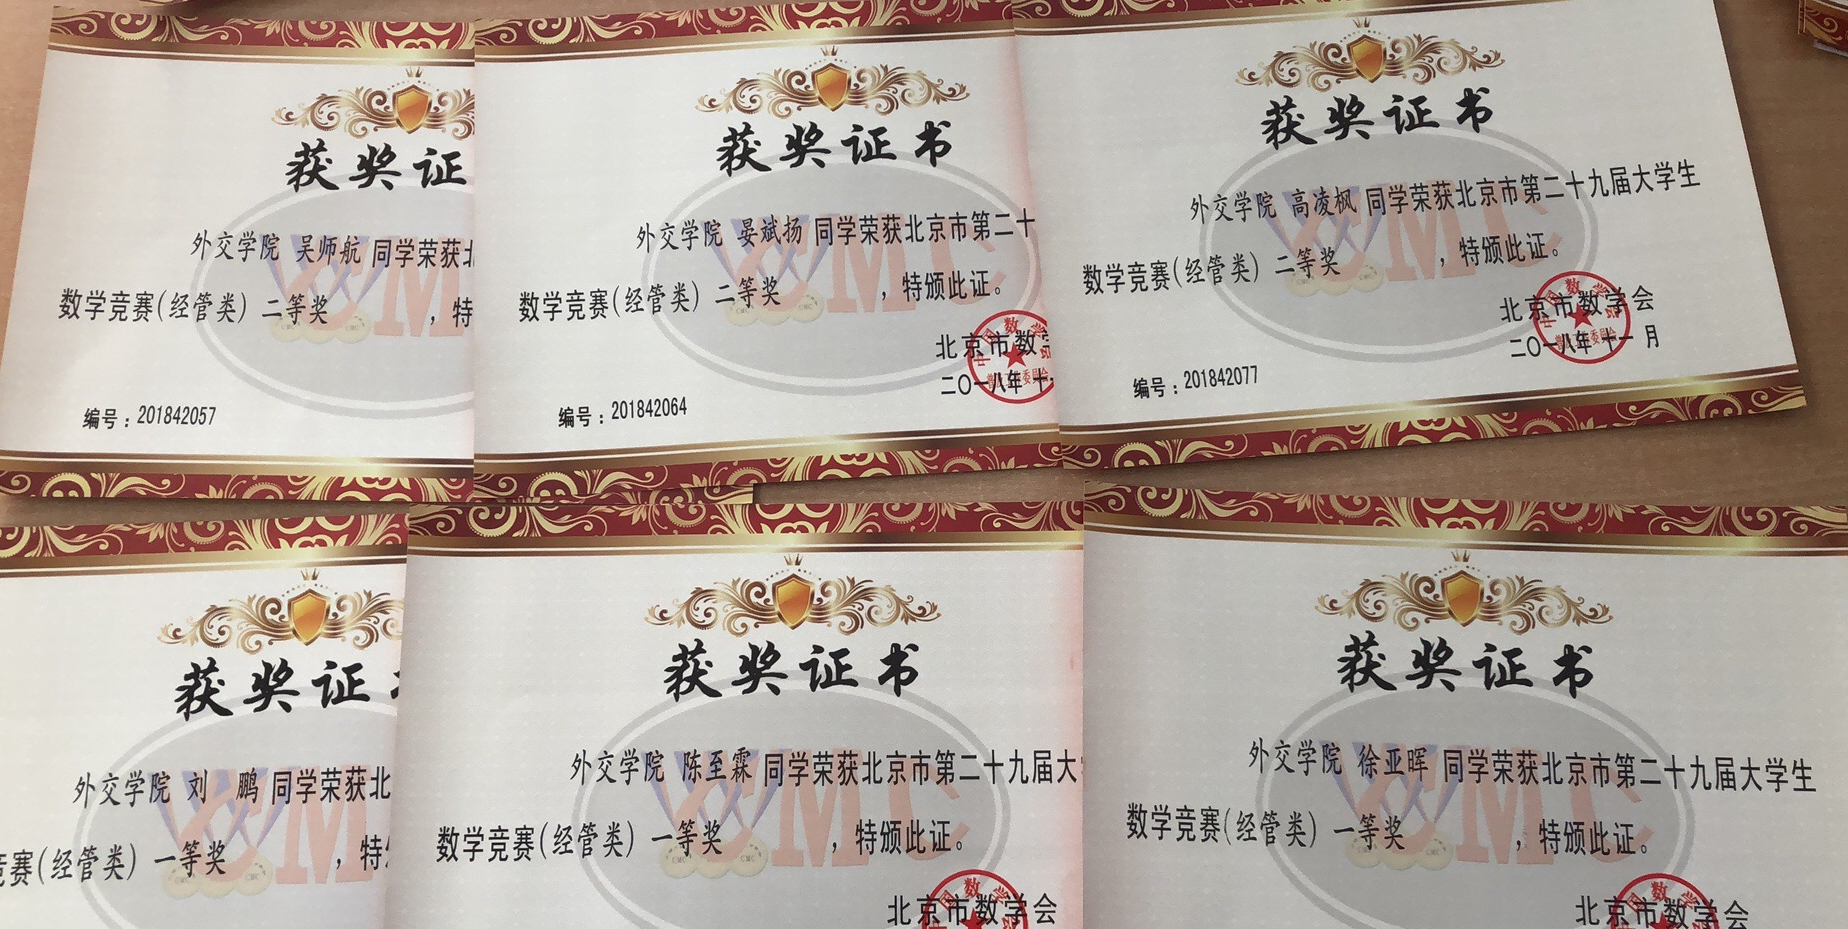 获奖证
外交学院 吴师航 同学荣获北
数学竞赛(经管类) 二等奖 ,特
编号:201842057
获奖证书
外交学院 晏斌扬 同学荣获北京市第二十
数学竞赛(经管类) 二等奖 ,特颁此证。
北京市数学
二〇一八年十一
编号:201842064
获奖证书
外交学院 高凌枫 同学荣获北京市第二十九届大学生
数学竞赛(经管类) 二等奖 ,特颁此证。
北京市数学会
二〇一八年十一月
编号:201842077
获奖证
外交学院 刘 鹏 同学荣获北
竞赛(经管类) 一等奖 ,特
获奖证书
外交学院 陈至霖 同学荣获北京市第二十九届大
数学竞赛(经管类) 一等奖 ,特颁此证。
北京市数学会
获奖证书
外交学院 徐亚晖 同学荣获北京市第二十九届大学生
数学竞赛(经管类) 一等奖 ,特颁此证。
北京市数学会